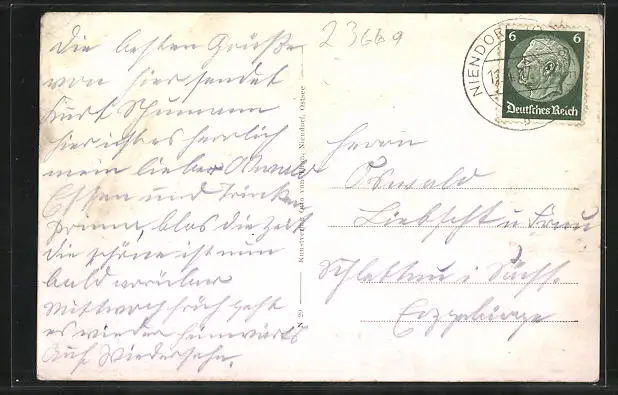 Die besten Grüße
von hier sendet
Kurt Schumann
hier ist es herrlich
mein lieber Oswald
Essen und Trinken
prima, blos die Zeit
die schöne ist nun
bald vorüber
Mittwoch früh geht
es wieder heimwärts
Auf Wiedersehn.
23669
N 29 Kunstverlag Ostsee
Niendorf, Ostsee
NIENDORF
6 6
Deutsches Reich
Herrn
Oswald
Liebscht u Frau
Schlettau i Sächs.
Erzgebirge